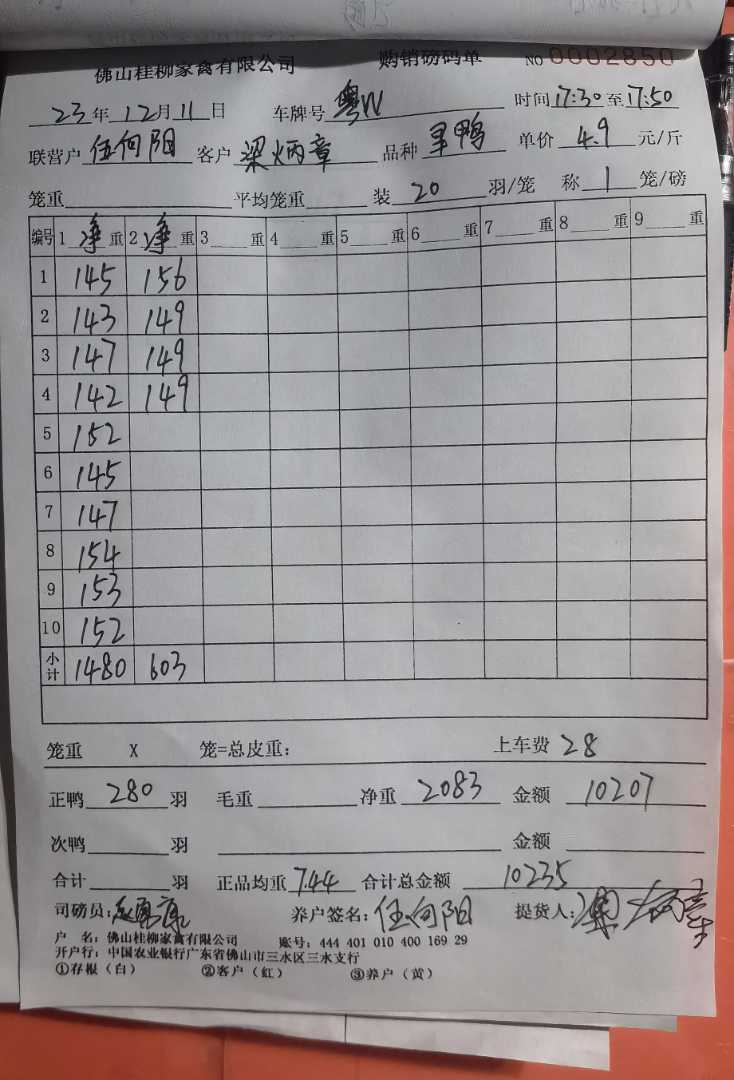 佛山桂柳家禽有限公司 购销磅码单 NO 0002850
23年12月11日 车牌号 粤W 时间17:30至17:50
联营户 伍何阳 客户 梁炳章 品种 鸭 单价 4.9 元/斤
笼重 平均笼重 装 20 羽/笼 称 1 笼/磅
编号 1 净 重 2 净 重 3 重 4 重 5 重 6 重 7 重 8 重 9 重
1 145 156
2 143 149
3 147 149
4 142 149
5 152
6 145
7 147
8 154
9 153
10 152
小计 1480 603
笼重 X 笼=总皮重: 上车费 28
正鸭 280 羽 毛重 净重 2083 金额 10207
次鸭 羽 金额
合计 羽 正品均重 7.44 合计总金额 10235
司磅员: 养户签名: 伍何阳 提货人: 梁炳章
户 名: 佛山桂柳家禽有限公司 账号: 444 401 010 400 169 29
开户行: 中国农业银行广东省佛山市三水区三水支行
①存根(白) ②客户(红) ③养户(黄)